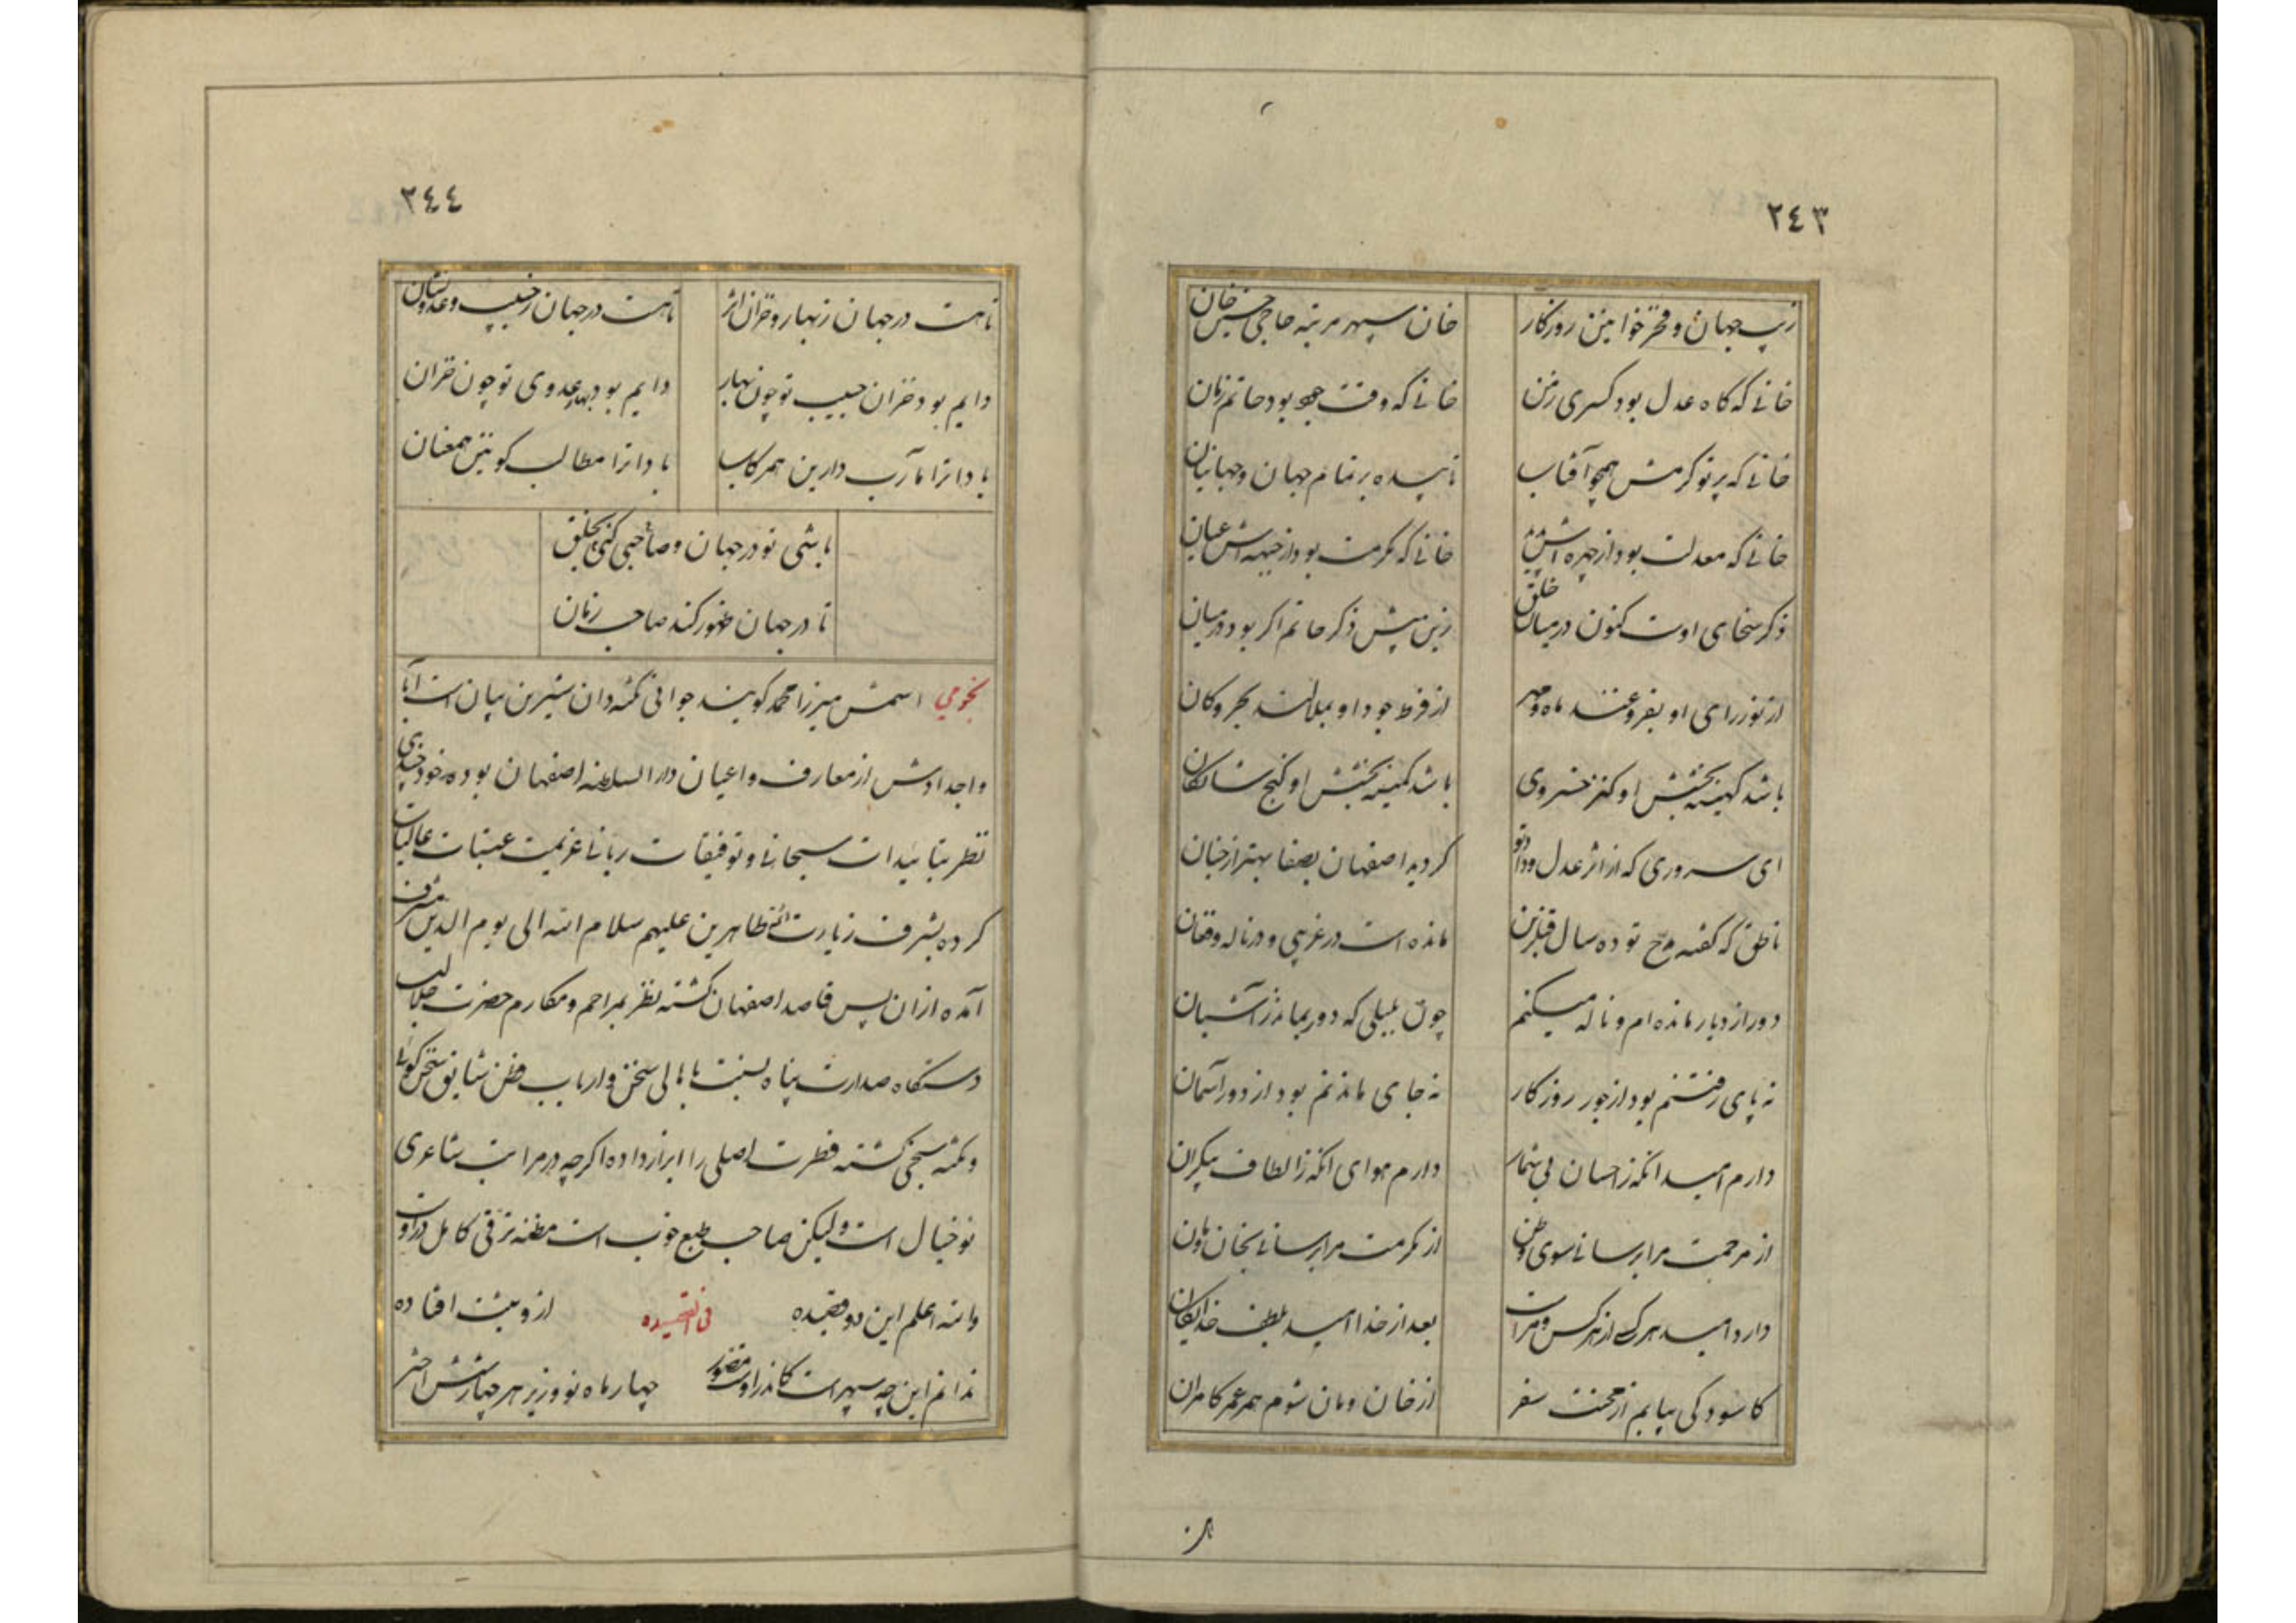 ٢٤٣
زیب جهان و فخر خوانین روزکار خان سپهر مرتبه حاجی حسین خان
خانی که کاه عدل بود کسری زمن خانی که وقت جود بود حاتم زمان
خانی که پرتو کرمش همچو آفتاب تابیده بر تمام جهان و جهانیان
خانی که معدلت بود از چهره اش خانی که مکرمت بود از جبهه اش عیان
ذکر سخای اوست کنون در میان خلق زین پیش ذکر حاتم اکر بود در میان
از نور رای او بفروغند ماه و مهر از فرط جود او بملالند بحر و کان
باشد کهینه بخشش او کنز خسروی باشد کمینه بخشش او کنج شایکان
ای سروری که از اثر عدل و داد تو کردید اصفهان بصفا بهتر از جنان
ناطق که کفته مدح تو ده سال قبل ازین مانده است در غریبی و در ناله و فغان
دور از دیار مانده ام و ناله میکنم چون بلبلی که دور بماند ز آشیان
نه پای رفتنم بود از جور روزکار نه جای ماندنم بود از دور آسمان
دارم امید انکه ز احسان بی شمار دارم هوای انکه ز الطاف بیکران
از مرحمت مرا برسانی سوی وطن از مکرمت مرا برسانی بخان و مان
دارد امید هر کسی از هر کس و مراست بعد از خدا امید بلطف خدایکان
کاسود کی بیابم از محنت سفر از خان و مان شوم همه عمر کامران
تا هست
٢٤٤
تا هست در جهان ز بهار و خزان اثر تا هست در جهان ز حبیب و عدو نشان
دایم بود خزان حبیب تو چون بهار دایم بود بهار عدوی تو چون خزان
بادا ترا مآرب دارین هم رکاب بادا ترا مطالب کونین همعنان
باشی تو در جهان و صاحبی کنی بخلق
تا در جهان ظهور کند صاحب زمان
نجومی اسمش میرزا محمد کویند جوانی نکته دان شیرین بیان است آبا
و اجدادش از معارف و اعیان دار السلطنه اصفهان بوده خود چندی
نظر بتائیدات سبحانی و توفیقات ربانی عزیمت عتبات عالیات
کرده بشرف زیارت ائمه طاهرین علیهم سلام الله الی یوم الدین مشرف
آمده از ان پس قاصد اصفهان کشته نظر بمراحم و مکارم حضرت جلالت
دستکاه صدارت پناه نسبت باهالی سخن و ارباب فطن شایق سخن کوئی
و نکته سنجی کشته فطرت اصلی را ابراز داده اکرچه در مراتب شاعری
نو خیال است ولیکن صاحب طبع خوب است مظنه ترقی کامل در اوست
والله اعلم این دو قصیده فی القصیده ازو ثبت افتاده
ندانم این چه سپهر است کاندر اوست چهار ماه نو و زیر هر چهارش اختر